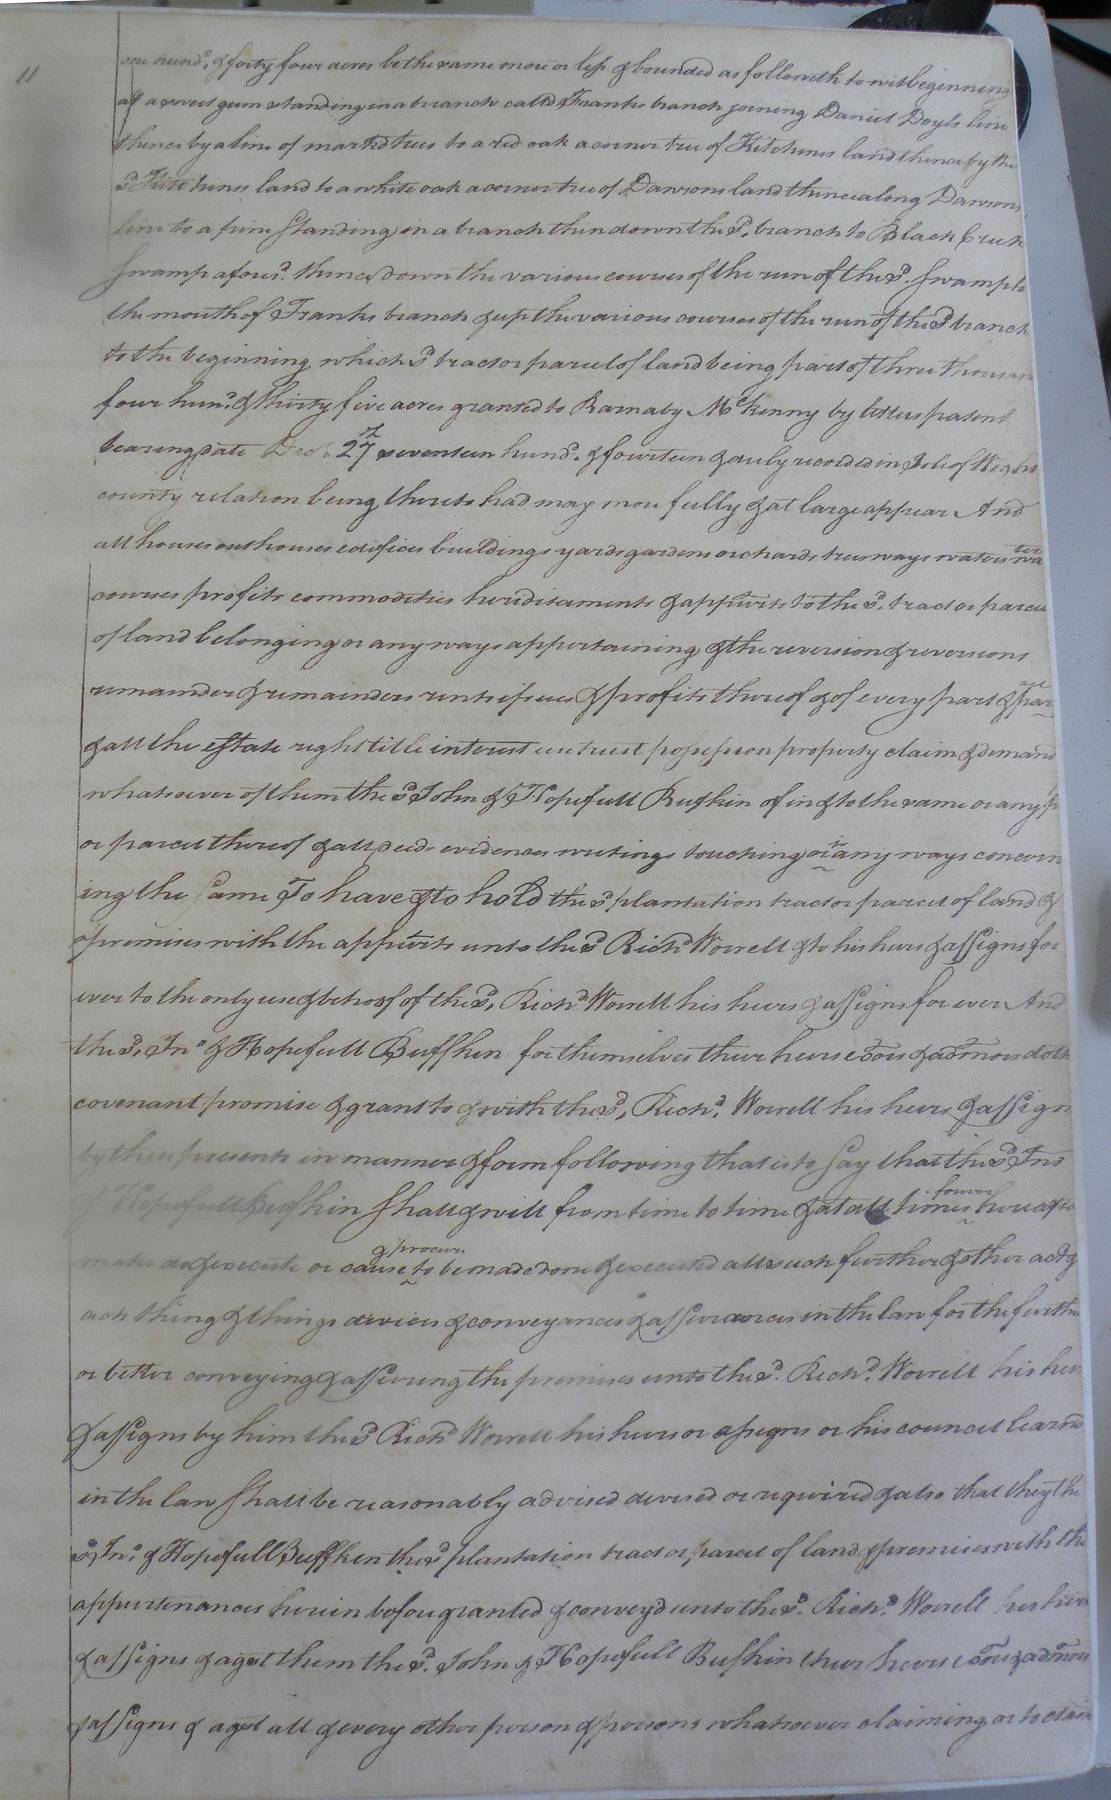 11
one hund.d & forty four acres be the same more or less & bounded as followeth to wit beginning
at a sweet gum standing in a branch calld Franks branch joining Daniel Doyls line
thence by a line of markd trees to a red oak a corner tree of Kitchens land thence by the
sd Kitchines land to a white oak a corner tree of Dawsons land thence along Dawsons
line to a pine standing in a branch then down the sd. branch to Black Creek
Swamp afores.d thence down the various courses of the run of the sd. Swamp to
the mouth of Franks branch & up the various courses of the run of the sd branch
to the beginning which sd tract or parcel of land being part of three thousan
four hund. & thirty five acres granted to Barnaby Mckenny by letters patent
bearing date Dec.r 27 seventeen hund.d & fourteen & duly recorded in Isle of Wight
county relation being thereto had may more fully & at large appear And
all houses outhouses edifices buildings yards gardens orchards trees ways waters wa ter
courses profits commodities heriditaments & appurts to the sd. tract or parcel
of land belonging or any ways appertaining & the reversion & reversions
remainder & remainders rents issues & profits thereof & of every part & par cel
& all the estate right title interest use trust possession property claim & demand
whatsoever of them the sd John & Hopefull Bufkin of in & to the same or any p
or parcel thereof & all deeds evidences writings touching or in any ways concern
ing the Same To have & to hold the sd plantation tract or parcel of land &
premises with the appurts unto the sd Richd Worrell & to his heirs & assigns for
ever to the only use & behoof of the sd. Richd. Worrell his heirs & assigns for ever And
the sd. Jno & Hopefull Buffkin for themselves their heirs exors & admors doth
covenant promise & grant to & with the sd. Richd. Worrell his heirs & assigns
by these presents in manner & form following that is to Say that the sd Jno
& Hopefull Bufkin shall & will from time to time & at all times forever hereafter
make do & execute or cause & procure to be made done & executed all such further & other act &
acts thing & things devices & conveyances & assurances in the law for the further
or better conveying & assureing the premises unto the sd. Richd. Worrell his heir
& assigns by him the sd Richd Worrell his heirs or assigns or his councel learnd
in the law shall be reasonably advised devised or required & also that they the
sd. Jno. & Hopefull Buffkin the sd plantation tract or parcel of land & premises with the
appurtenances herein before granted & conveyd unto the sd. Richd. Worrell his heirs
& assigns & agst them the sd. John & Hopefull Bufkin their heirs exors & admors
& assigns & agst all & every other person & persons whatsoever claiming or to claim